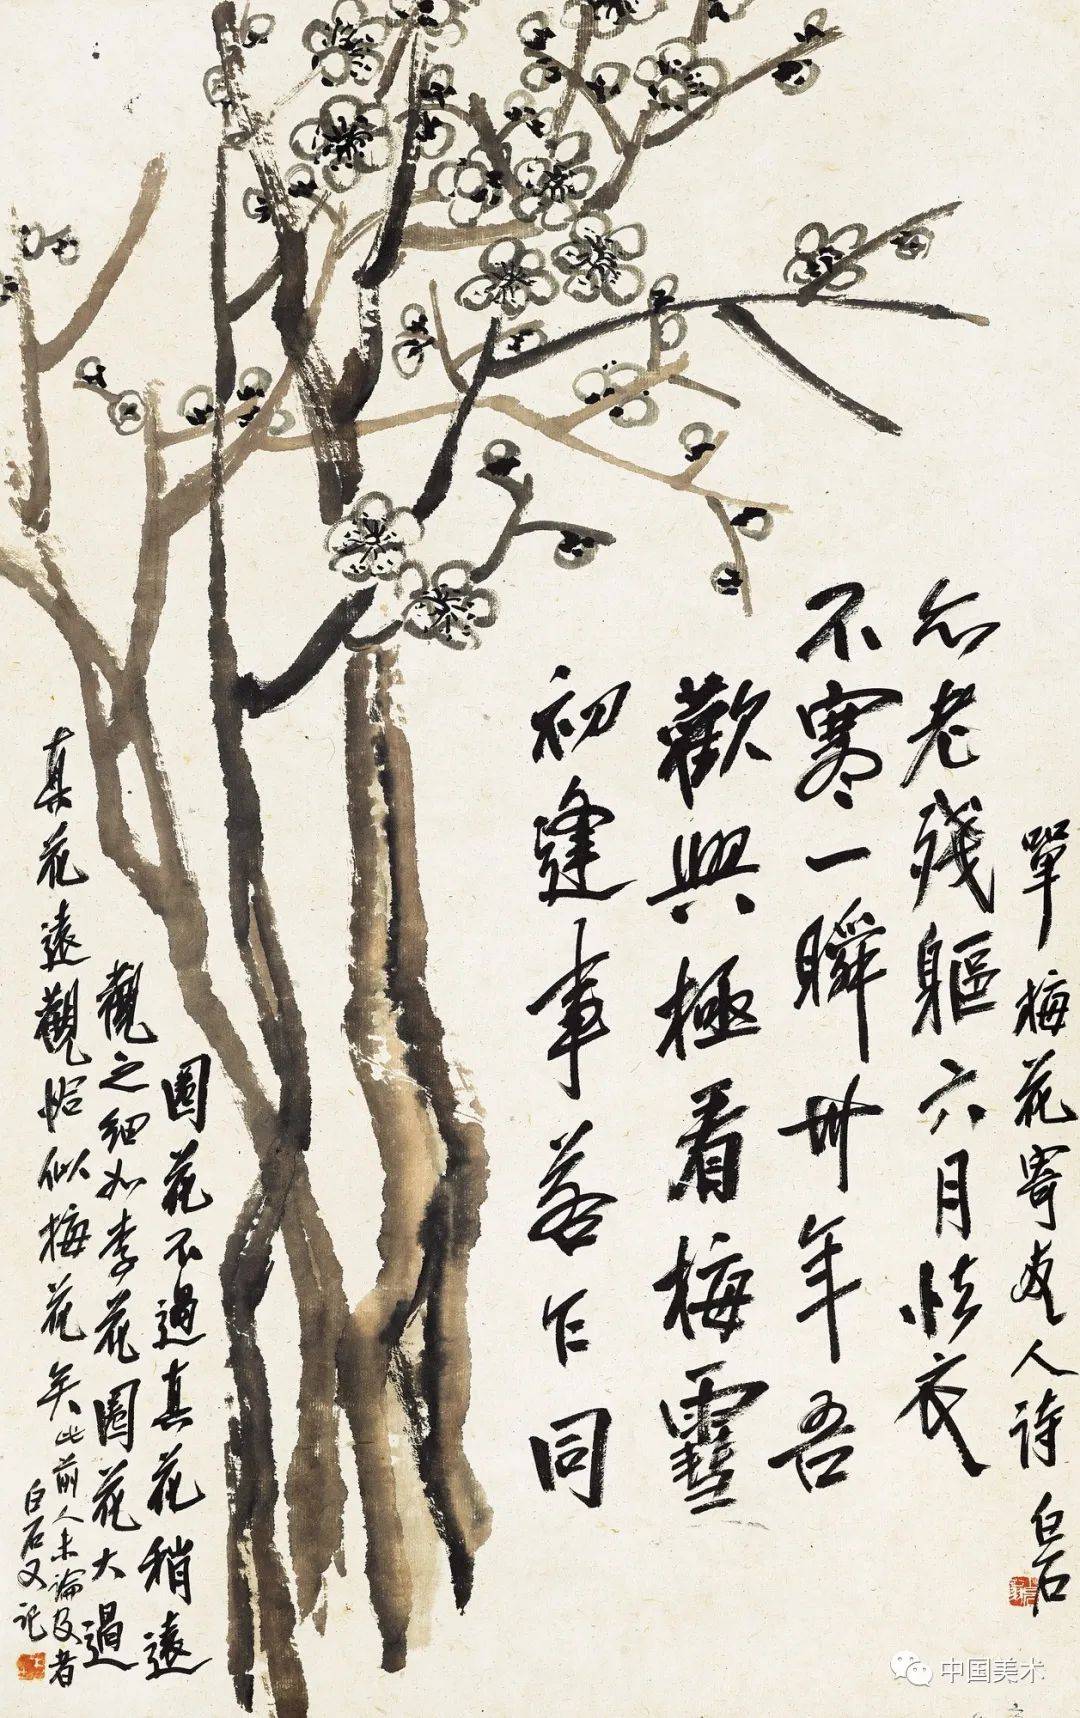 初逢事若乍同
歡興極看梅雪
不寒一瞬卅年吾
尒老殘軀六月怯衣
單梅花寄友人詩 白石
圈花不過真花稍遠
觀之細如李花圈花大過
真花遠觀恰似梅花矣此前人未論及者
白石又記
中国美术